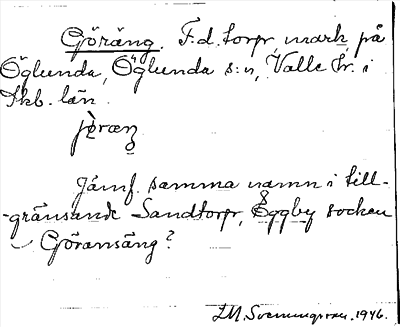 Göräng. F.d. torp, mark på
Öglunda, Öglunda s:n, Valle hr. i
Skb. län.
Jämf. samma namn i till-
-gränsande Sandtorp, Eggby socken
Göransäng?
1946.